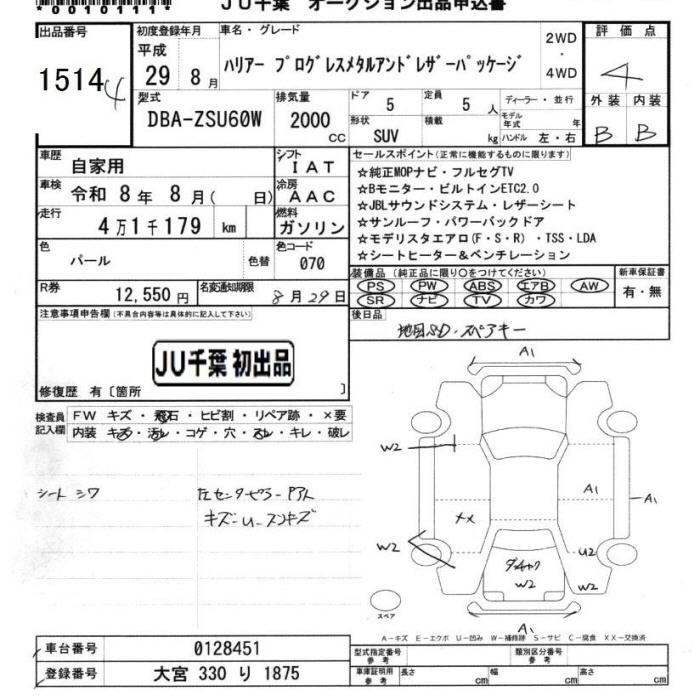 *00101111*
JU千葉 オークション出品申込書
出品番号
15144
初度登録年月
平成
29年8月
車名・グレード
ハリアー プログレスメタルアンドレザーパッケージ
2WD
・
4WD
評価点
4
外装 内装
B B
型式
DBA-ZSU60W
排気量
2000
cc
ドア
5
定員
5人
形状
SUV
積載
kg
ディーラー・並行
モデル年式 年
ハンドル 左・右
車歴
自家用
シフト
IAT
車検
令和 8年 8月( 日)
冷房
AAC
走行
4万1千179 km
燃料
ガソリン
色
パール
色替
色コード
070
R券
12,550円
名変通知期限
8月29日
セールスポイント(正常に機能するものに限ります)
☆純正MOPナビ・フルセグTV
☆Bモニター・ビルトインETC2.0
☆JBLサウンドシステム・レザーシート
☆サンルーフ・パワーバックドア
☆モデリスタエアロ(F・S・R)・TSS・LDA
☆シートヒーター&ベンチレーション
装備品(純正品に限り○をつけてください)
PS PW ABS エアB AW
SR ナビ TV カワ
新車保証書
有・無
後日品
地図SD・スペアキー
注意事項申告欄(不具合内容等は具体的に記入して下さい)
JU千葉 初出品
修復歴 有〔箇所 〕
検査員記入欄
FW キズ・飛石・ヒビ割・リペア跡・×要
内装 キズ・汚れ・コゲ・穴・スレ・キレ・破レ
シートシワ
左センターピラーP下ト
キズ-U-スンキズ
A1
W2
A1
A1
XX
W2
U2
W2
W2
A1
スペア
A-キズ E-エクボ U-凹み W-補修跡 S-サビ C-腐食 XX-交換済
車台番号
0128451
登録番号
大宮 330 り 1875
型式指定番号
参考
類別区分番号
参考
車庫証明用
参考
長さ cm
幅 cm
高さ cm